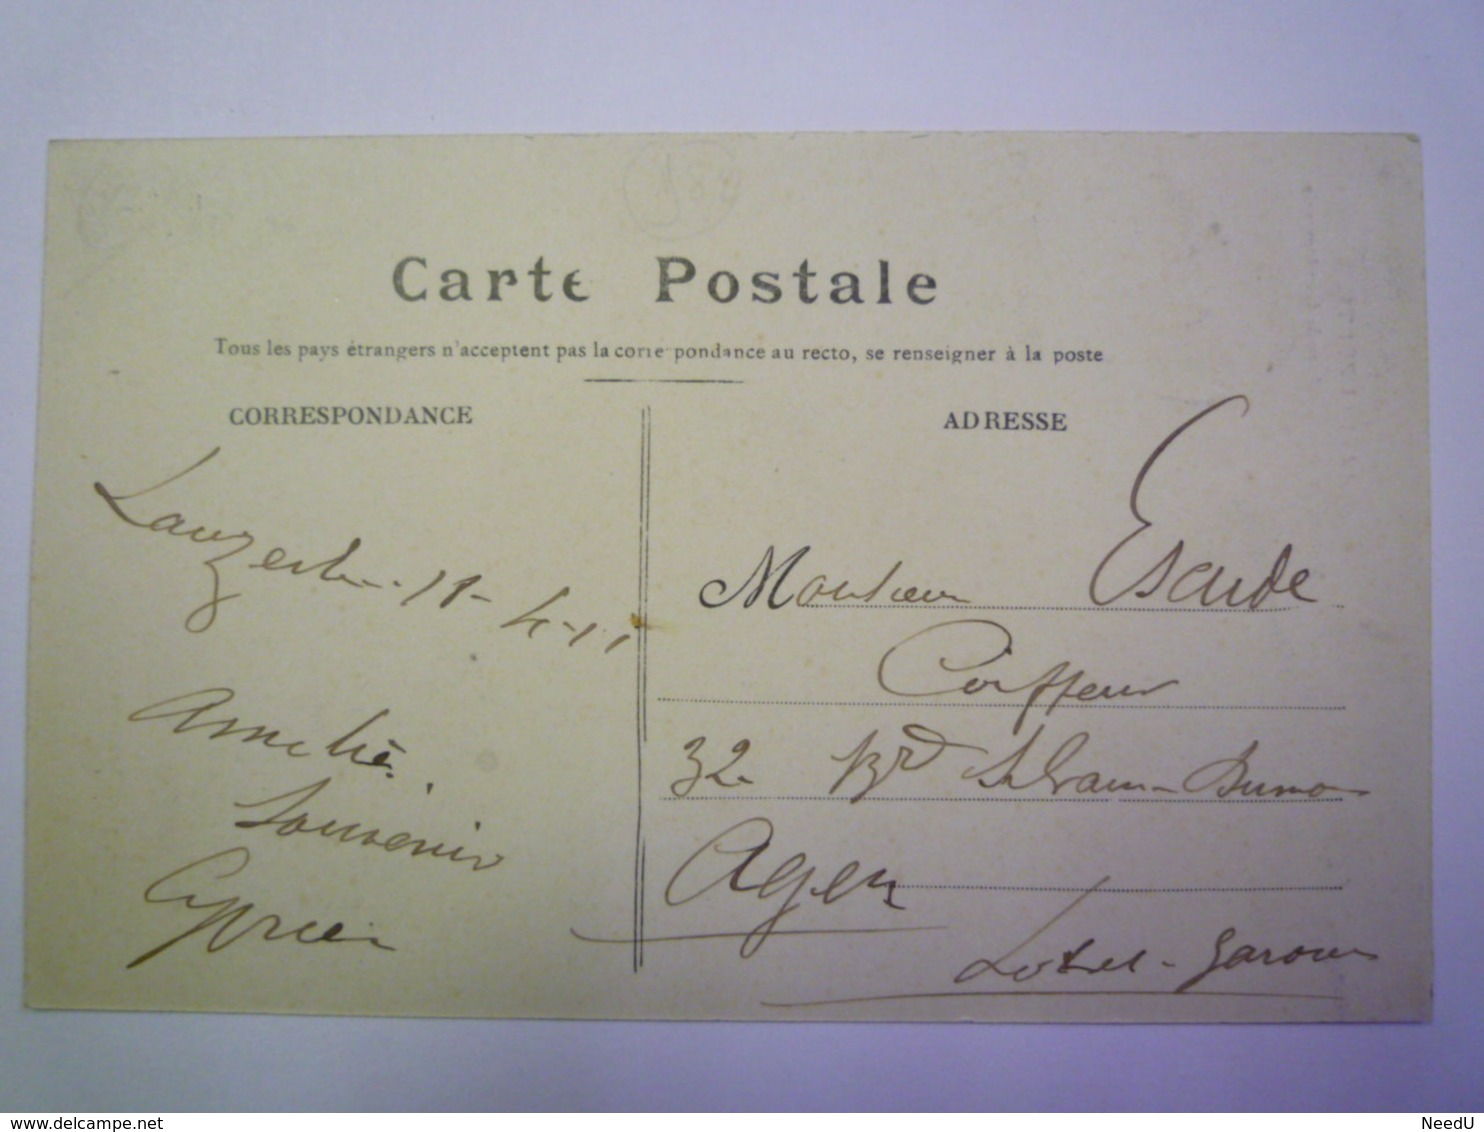 Carte Postale
Tous les pays étrangers n'acceptent pas la correspondance au recto, se renseigner à la poste
CORRESPONDANCE
ADRESSE
Lauzerte. 18-4-11
Amitié.
Souvenir
Cyprien
Monsieur Escude
Coiffeur
32 Bd Sylvain-Dumon
Agen
Lot et-Garonne
NeedU
© delcampe.net